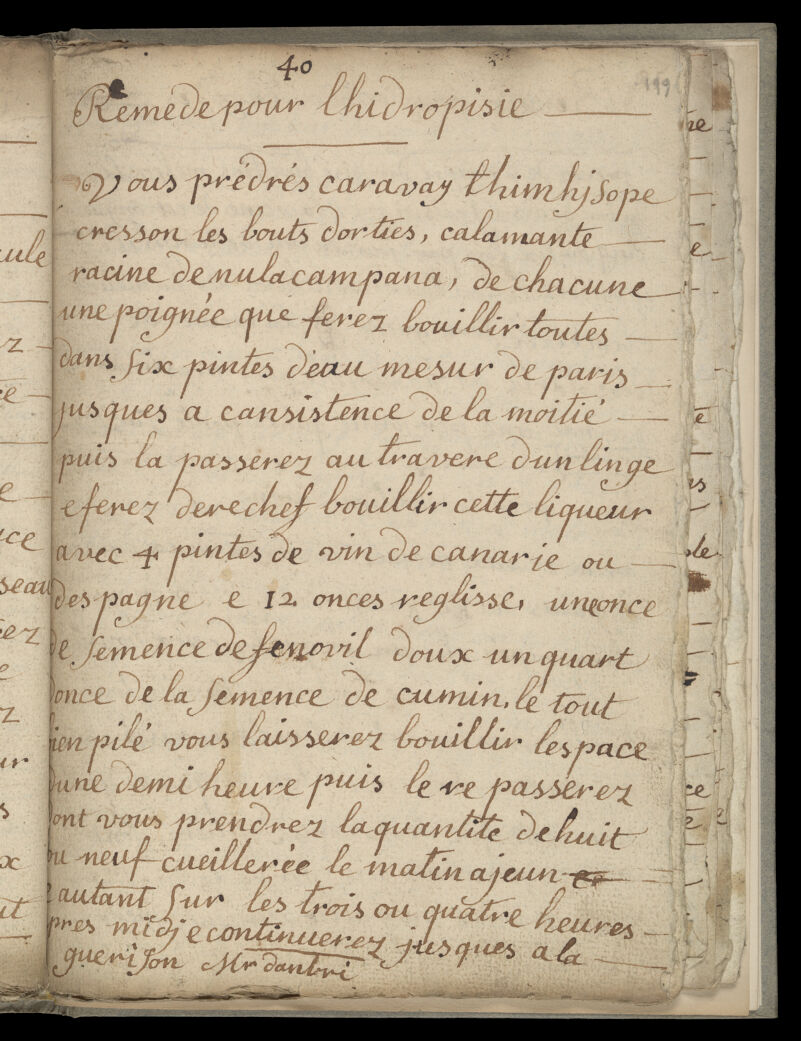 40
199
Remede pour lhidropisie
Vous prédrés caravay thimhjsope
cresson les bouts dorties, calamante
racine denulacampana, de chacune
une poignée que ferez bouillir toutes
dans six pintes déau mesur de paris
jusques a cansistence de la moitié
puis la passerez au travere dun linge
e ferez derechef bouillir cette liqueur
avec 4 pintes de vin de canarie ou
despagne e 12 onces reglisse, une once
de semence de fenovil doux un quart
donce de la semence de cumin, le tout
bien pilé vous laisserez bouillir lespace
dune demi heure puis le re passerez
dont vous prendrez la quantite de huit
ou neuf cueillerée le matin ajeun
e autant sur les trois ou quatre heures
apres midj e continuerez jusques a la
guerison Mr danbri